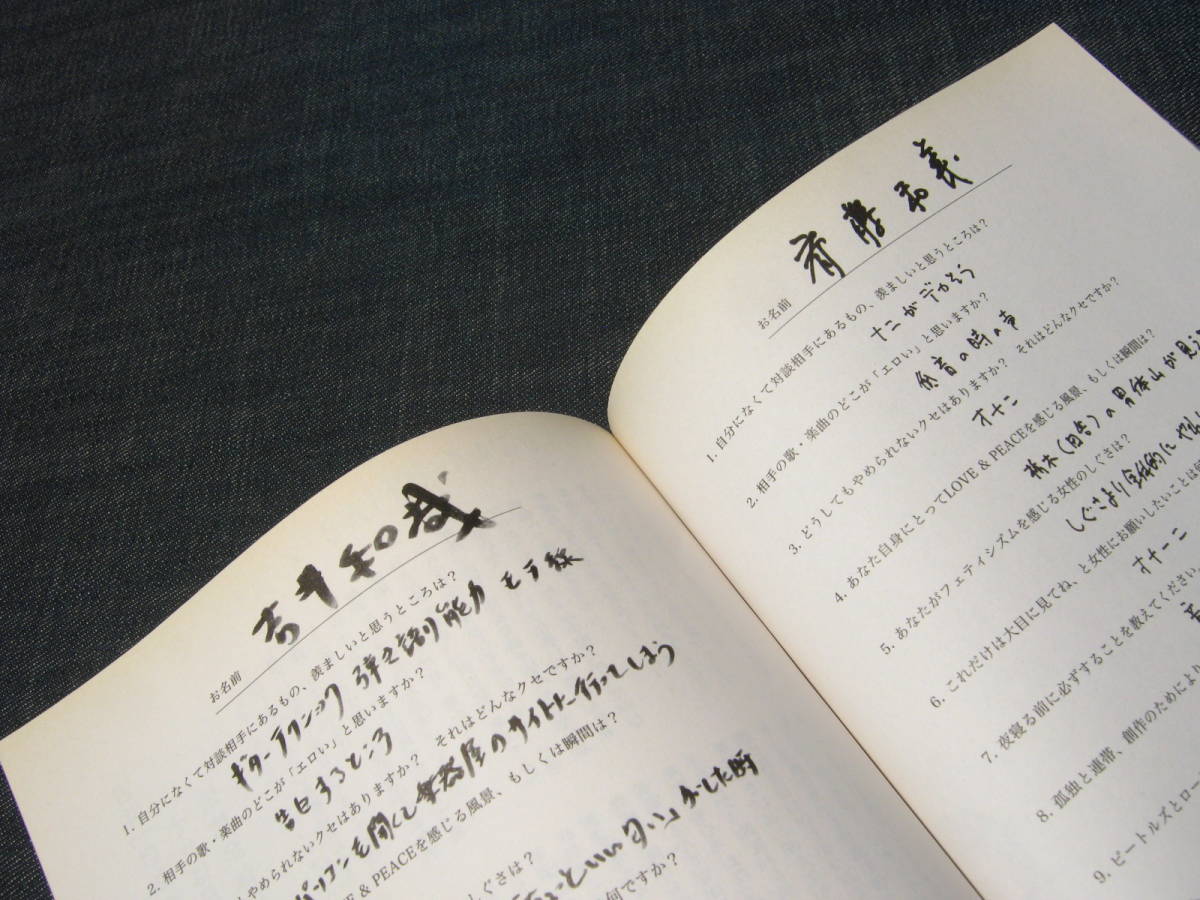 お名前 吉井和哉
1. 自分になくて対談相手にあるもの、羨ましいと思うところは?
ギターテクニック 弾き語り能力 モテ様
2. 相手の歌・楽曲のどこが「エロい」と思いますか?
告白するところ
もやめられないクセはありますか? それはどんなクセですか?
パソコンを開くと楽器屋のサイトに行ってしまう
VE & PEACEを感じる風景、もしくは瞬間は?
しぐさは?
といい匂い」がした時
何ですか?
お名前 斉藤和義
1. 自分になくて対談相手にあるもの、羨ましいと思うところは?
ナニがデカそう
2. 相手の歌・楽曲のどこが「エロい」と思いますか?
低音の時の声
3. どうしてもやめられないクセはありますか? それはどんなクセですか?
オナニー
4. あなた自身にとってLOVE & PEACEを感じる風景、もしくは瞬間は?
栃木(日光)の男体山が見え
5. あなたがフェティシズムを感じる女性のしぐさは?
しぐさより全体的に
6. これだけは大目に見てね、と女性にお願いしたいことは
オナニー
7. 夜寝る前に必ずすることを教えてください。
8. 孤独と連帯、創作のためにより
9. ビートルズとロー